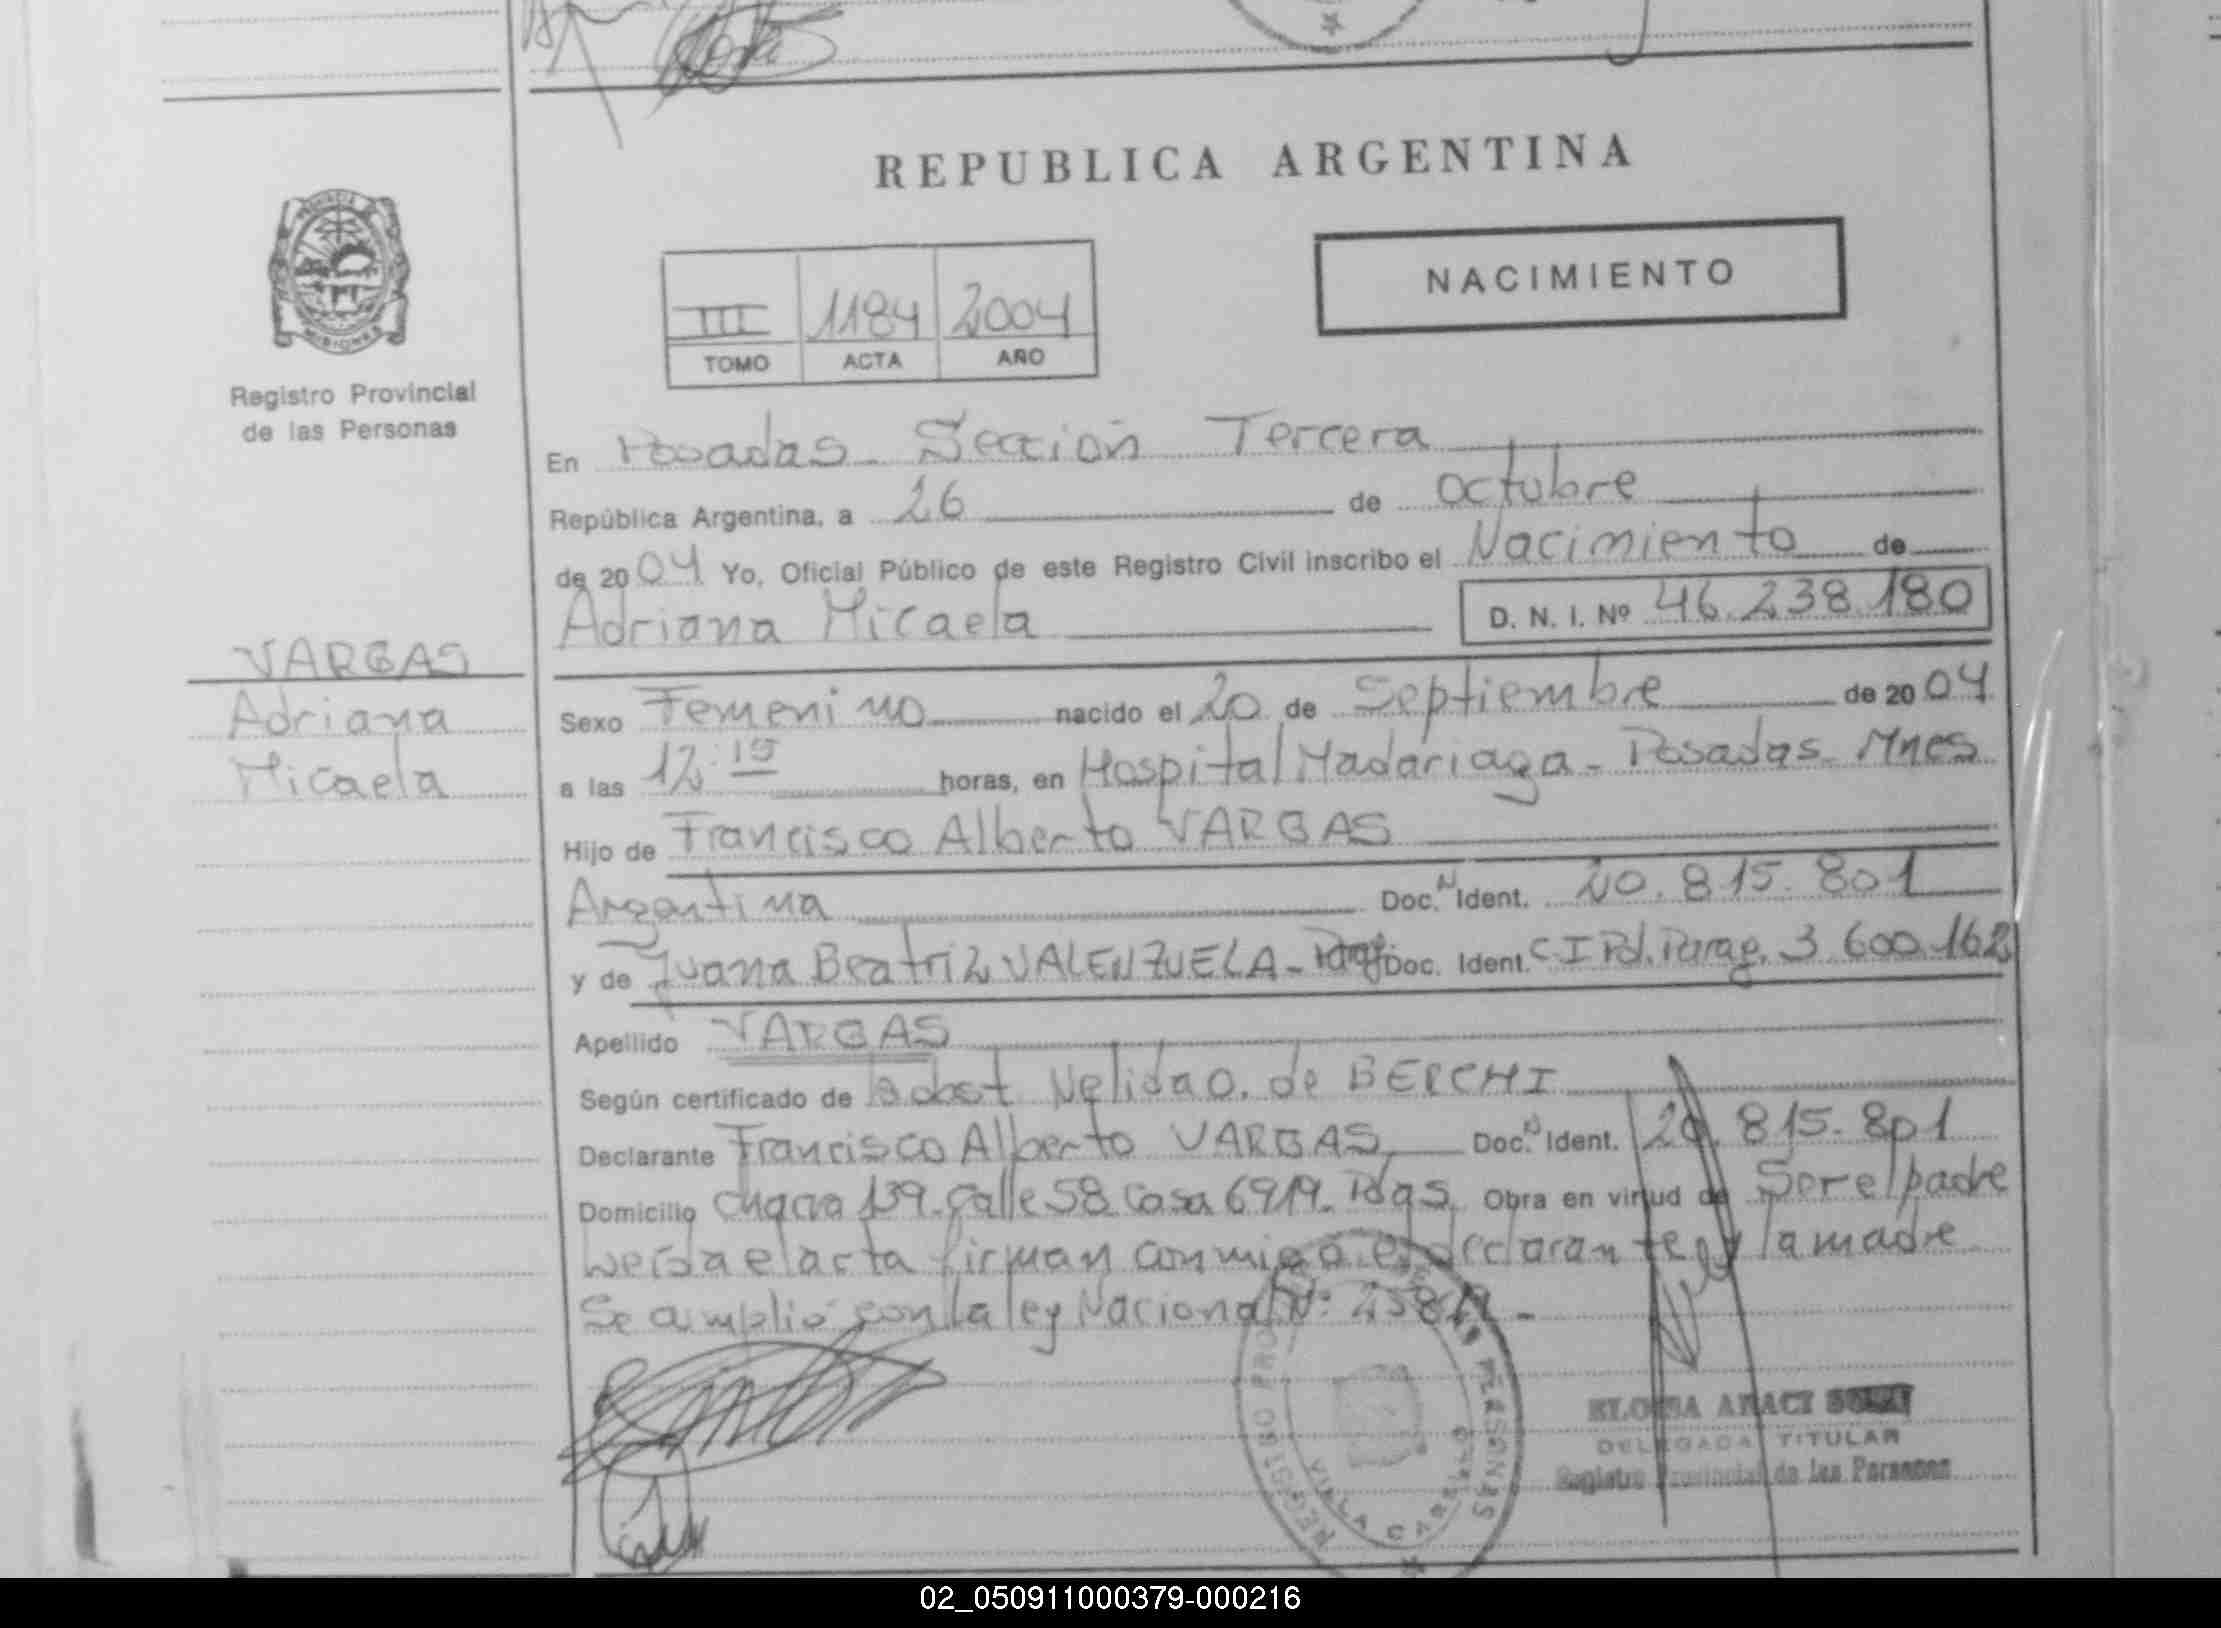 REPUBLICA ARGENTINA
NACIMIENTO
III 1184 2004
TOMO ACTA AÑO
Registro Provincial
de las Personas
En Posadas Sección Tercera
República Argentina, a 26 de octubre
de 2004 Yo, Oficial Público de este Registro Civil inscribo el Nacimiento de
Adriana Micaela D. N. I. Nº 46.238.180
VARGAS
Adriana
Micaela
Sexo Femenino nacido el 20 de Septiembre de 2004
a las 12:15 horas, en Hospital Madariaga - Posadas - Mnes
Hijo de Francisco Alberto VARGAS
Argentina Doc. N Ident. 20.815.801
y de Juana Beatriz VALENZUELA - Doc. Ident. C I Pol. Parag. 3.600.162
Apellido VARGAS
Según certificado de Obst Nelida O. de BERCHI
Declarante Francisco Alberto VARGAS Doc. N Ident. 20.815.801
Domicilio Chacra 139 - Calle 58 Casa 6919 - Pdas. Obra en virtud de Ser el padre
Leída el acta firman conmigo el declarante y la madre
Se amplió con la ley Nacional Nº
REGISTRO PERSONAS
VILLA CABELLO
DELEGADA TITULAR
Registro Provincial de las Personas
02_050911000379-000216